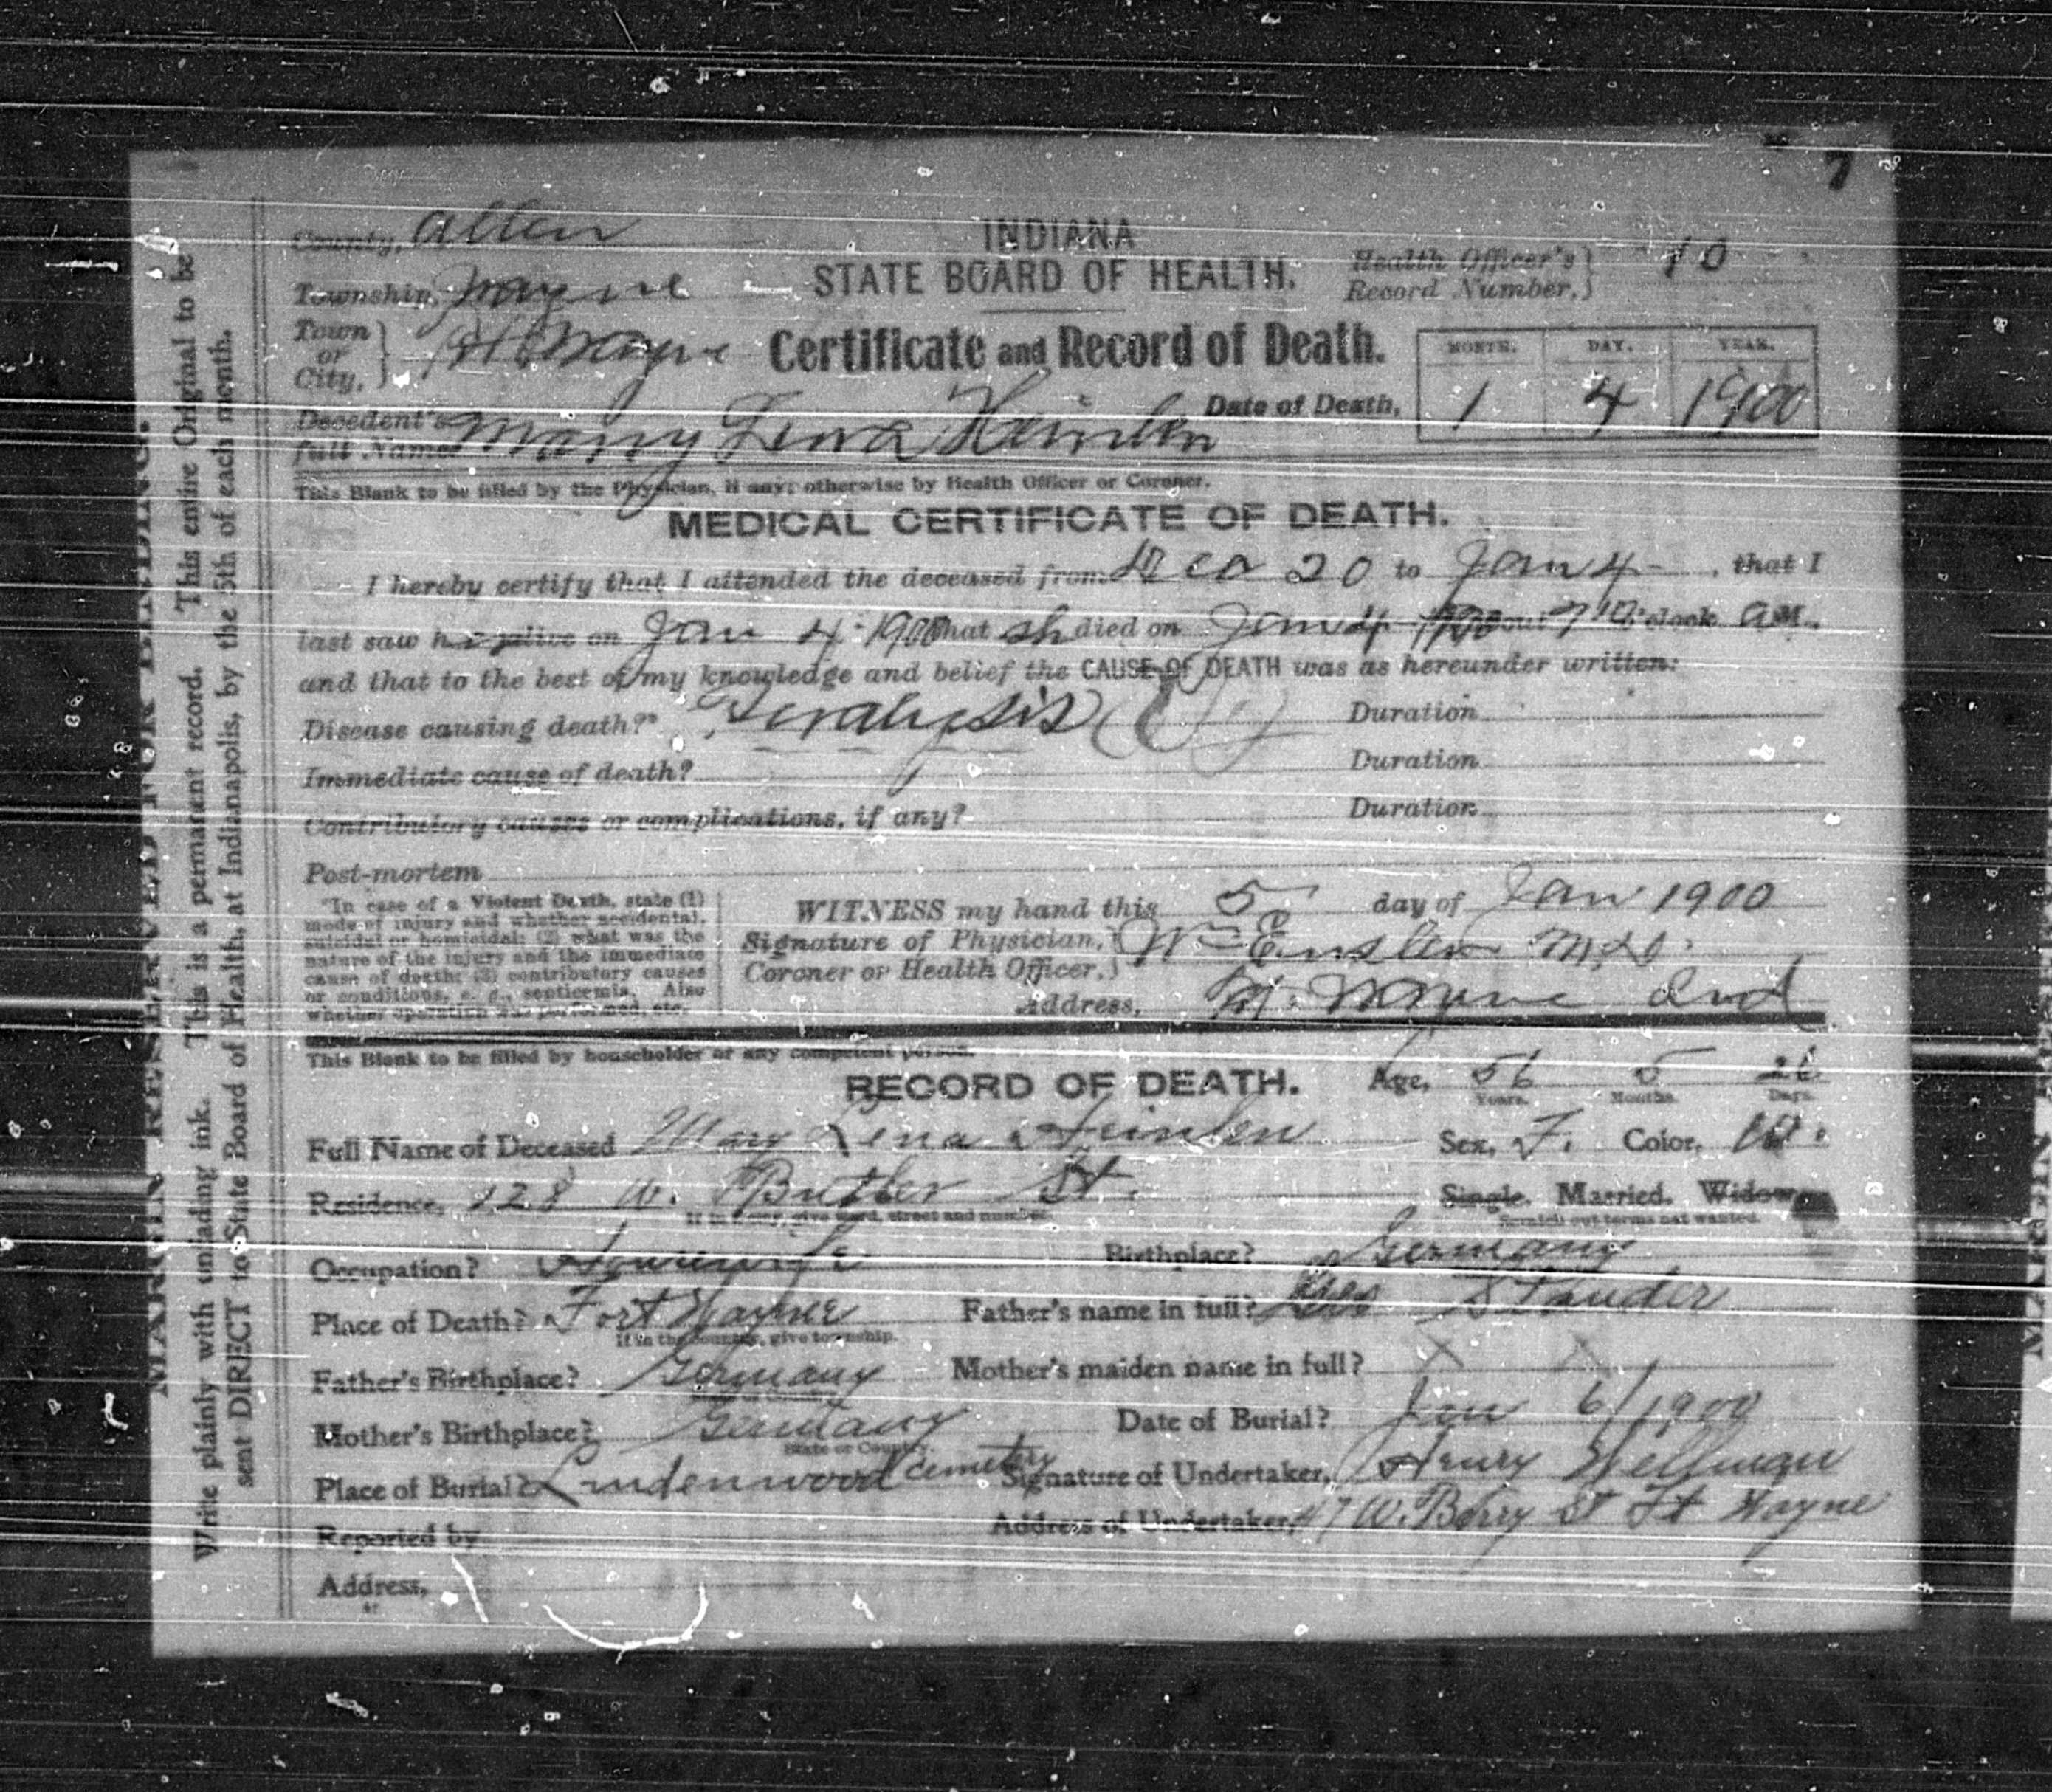 7
County, Allen
INDIANA
STATE BOARD OF HEALTH.
Health Officer's
Record Number, 10
Township, Wayne
Town
or
City, Ft Wayne
Certificate and Record of Death.
MONTH. DAY. YEAR.
Date of Death, 1 4 1900
Decedent's
full Name Mary Lena Heinlen
This Blank to be filled by the Physician, if any; otherwise by Health Officer or Coroner.
MEDICAL CERTIFICATE OF DEATH.
I hereby certify that I attended the deceased from Dec 20 to Jan 4 , that I
last saw h alive on Jan 4 - 1900 that sh died on Jan 4 1900 7 o'clock AM.,
and that to the best of my knowledge and belief the CAUSE OF DEATH was as hereunder written:
Disease causing death?* Paralysis Duration
Immediate cause of death? Duration
Contributory causes or complications, if any? Duration
Post-mortem
*In case of a Violent Death, state (1)
mode of injury and whether accidental,
suicidal or homicidal; (2) what was the
nature of the injury and the immediate
cause of death; (3) contributory causes
or conditions, e. g., septicemia. Also
whether operation was performed, etc.
WITNESS my hand this 5 day of Jan 1900
Signature of Physician,
Coroner or Health Officer, Wm Enslen M.D.
Address, Ft. Wayne Ind
This Blank to be filled by householder or any competent person.
RECORD OF DEATH. Age, 56 5 26
Years. Months. Days.
Full Name of Deceased Mary Lena Heinlen Sex, F. Color, W.
Residence, 128 W. Butler St. Single. Married. Widow
If in a city, give ward, street and number. Scratch out terms not wanted.
Occupation? Housewife Birthplace? Germany
Place of Death? Fort Wayne Father's name in full? Stauder
If in the country, give township.
Father's Birthplace? Germany Mother's maiden name in full? X X
Mother's Birthplace? Germany Date of Burial? Jan 6/1900
State or Country.
Place of Burial? Lindenwood cemetery Signature of Undertaker, Henry Wellman
Reported by Address of Undertaker, 47 W. Berry St Ft Wayne
Address,
MARGIN RESERVED FOR BINDING.
Write plainly with unfading ink. This is a permanent record. This entire Original to be
sent DIRECT to State Board of Health, at Indianapolis, by the 5th of each month.
MARGIN RESER